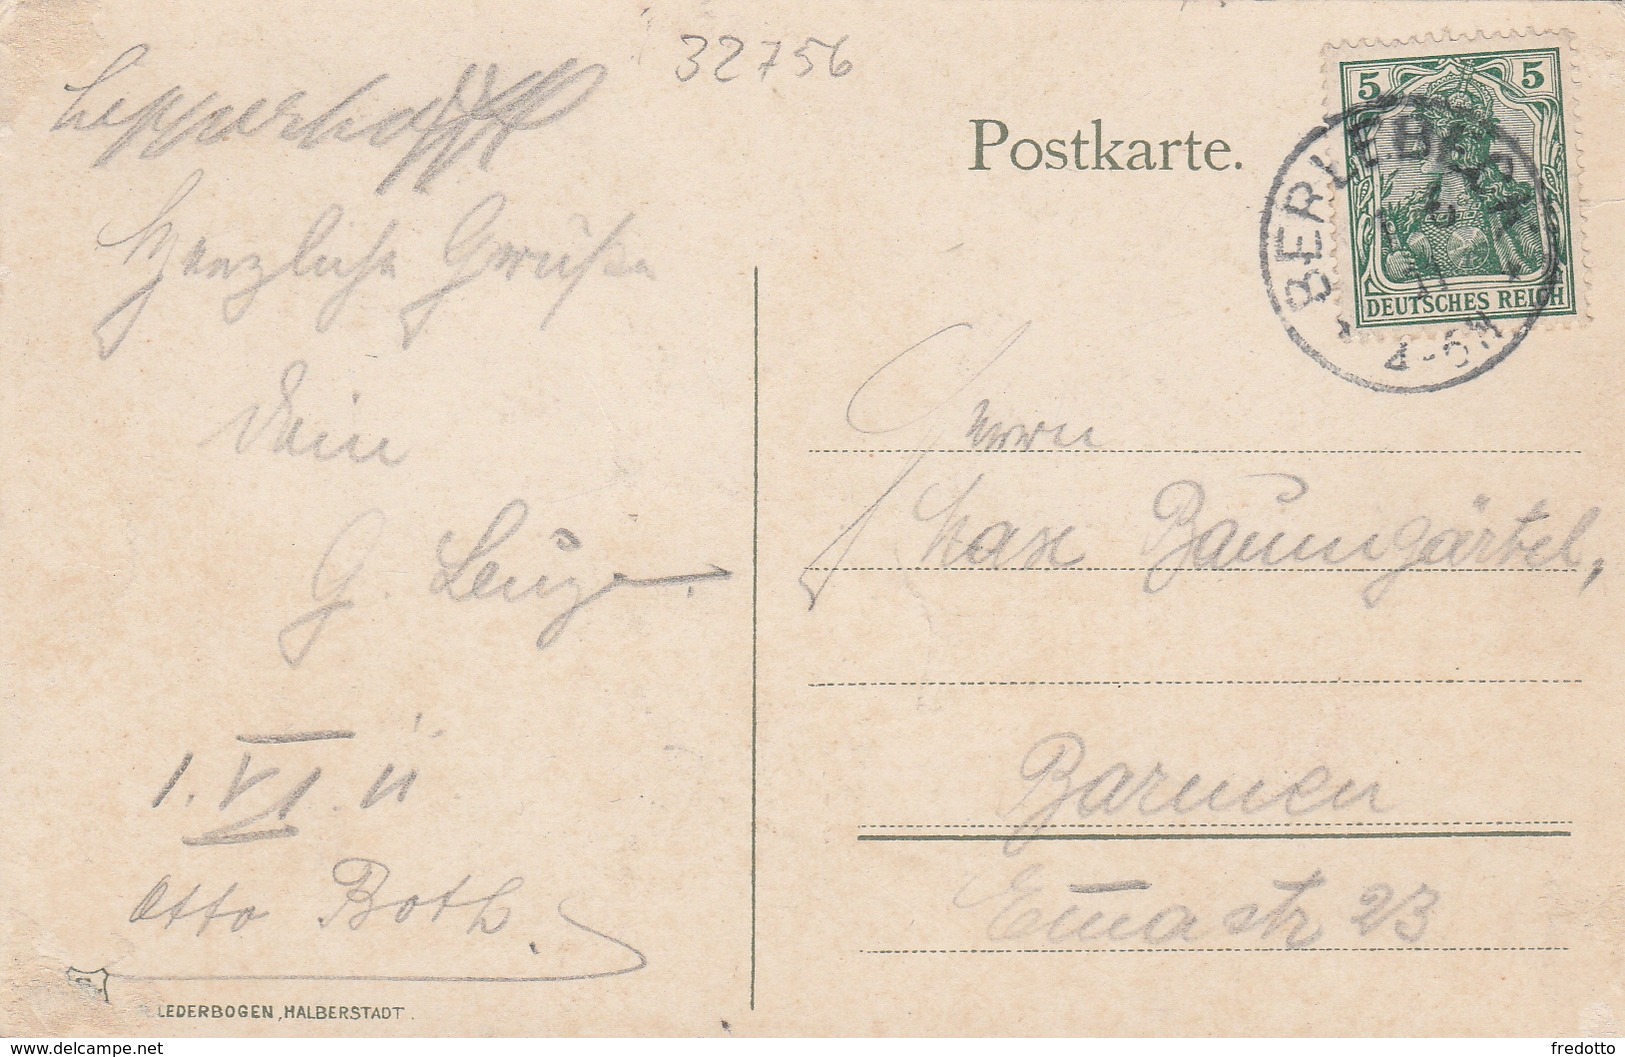 32756
Herzliche Grüße
Dein
G.
1. VI. 11
Otto Both.
LEDERBOGEN, HALBERSTADT.
Postkarte.
5 5
DEUTSCHES REICH
BERLEBECK
4-5N
Herrn
Max Baumgärtel,
Barmen
Emastr 23
www.delcampe.net
fredotto